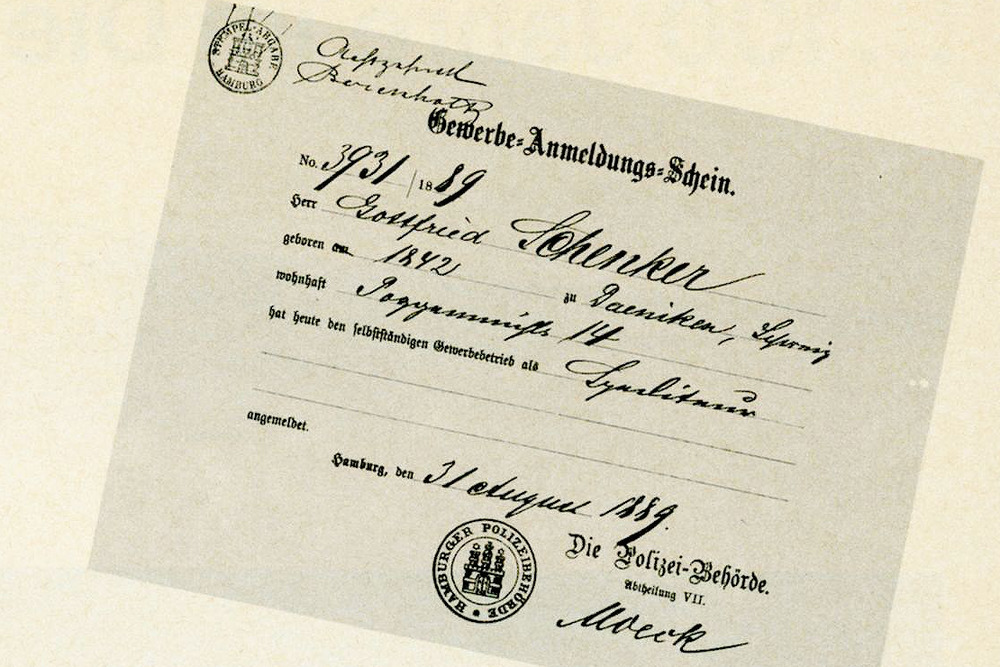 STEMPEL-ABGABE HAMBURG
Gewerbe-Anmeldungs-Schein.
No. 3931/1889
Herr Gottfried Schenker
geboren am 1842 zu Daeniken, Schweiz
wohnhaft Poggenmühle 14
hat heute den selbstständigen Gewerbebetrieb als Spediteur
angemeldet.
Hamburg, den 31 August 1889.
HAMBURGER POLIZEIBEHÖRDE
Die Polizei-Behörde.
Abtheilung VII.
Moeck